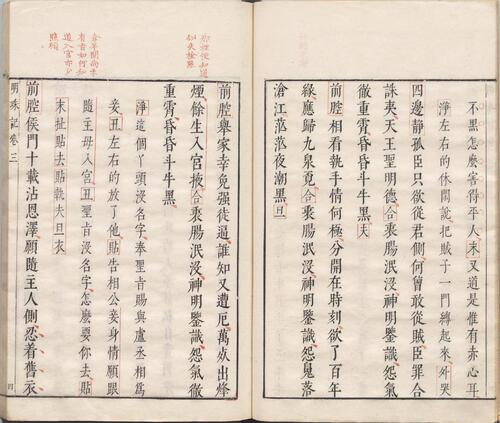 那裡便知道
似失檢點
不黑怎麽害得平人末又道是惟有赤心耳
淨左右的休閒說把賊子一門縛起來外哭
四邊靜孤臣只欲從君側何曾敢從賊臣罪合
誅夷天王聖明德合衷腸泯沒神明鑒識怨氣
徹重霄昏昏斗牛黑夫
前腔相看執手情何極分開在時刻欲了百年
緣應歸九泉覓合衷腸泯沒神明鑒識怨鬼落
滄江茫茫夜潮黑旦
尚未
有旨如何知
道入宮亦少
照顧
前腔舉家幸免強徒逼誰知又遭厄萬死出烽
煙餘生入宮掖合衷腸泯沒神明鑒識怨氣徹
重霄昏昏斗牛黑
淨這個丫頭沒名字奉聖旨賜與盧丞相爲
妾丑左右的放了他貼告相公妾身情願跟
隨主母入宮丑聖旨沒名字怎麽要你去貼
末扯貼去貼執夫旦衣
前腔侯門十載沾恩澤願隨主人側忍着舊衣
明珠記卷三
四